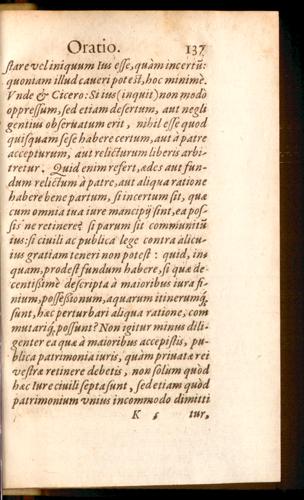 Oratio. 137
stare vel iniquum Ius esse, quàm incertũ:
quoniam illud caveri potest, hoc minimè.
Vnde & Cicero: Si ius (inquit) non modò
oppressum, sed etiam desertum, aut negli
gentius observatum erit, nihil esse quod
quisquam sese habere certum, aut à patre
accepturum, aut relicturum liberis arbi-
tretur. Quid enim refert, ædes aut fun-
dum relictum à patre, aut aliqua ratione
habere bene partum, si incertum sit, quæ
cum omnia tua iure mancipij sint, ea pos-
sis ne retinere? si parum sit communitũ
ius: si civili ac publica lege contra alicu-
ius gratiam teneri non potest: quid, in-
quam, prodest fundum habere, si quæ de-
centißimè descripta à maioribus iura fi-
nium, poßeßionum, aquarum itinerumq́;
sunt, hæc perturbari aliqua ratione, com
mutariq́; poßunt? Non igitur minus dili-
genter ea quæ à maioribus accepistis, pu-
blica patrimonia iuris, quàm privatæ rei
vestræ retinere debetis, non solum quòd
hæc Iure civili septa sunt, sed etiam quòd
patrimonium vnius incommodo dimitti
K 5 tur,